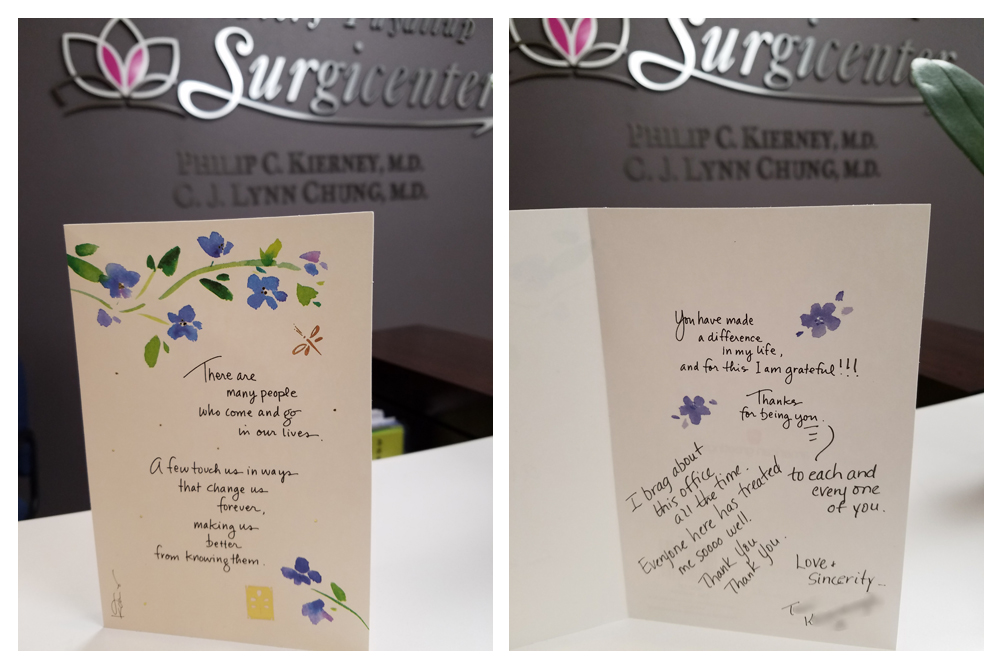 Puyallup
Surgicenter
PHILIP C. KIERNEY, M.D.
C. J. LYNN CHUNG, M.D.
There are
many people
who come and go
in our lives.
A few touch us in ways
that change us
forever,
making us
better
from knowing them.
Surgicenter
PHILIP C. KIERNEY, M.D.
C. J. LYNN CHUNG, M.D.
You have made
a difference
in my life,
and for this I am grateful!!!
Thanks
for being you.
to each and
every one
of you.
I brag about
this office
all the time.
Everyone here has treated
me soooo well.
Thank you
Thank you.
Love +
Sincerity...
T
K